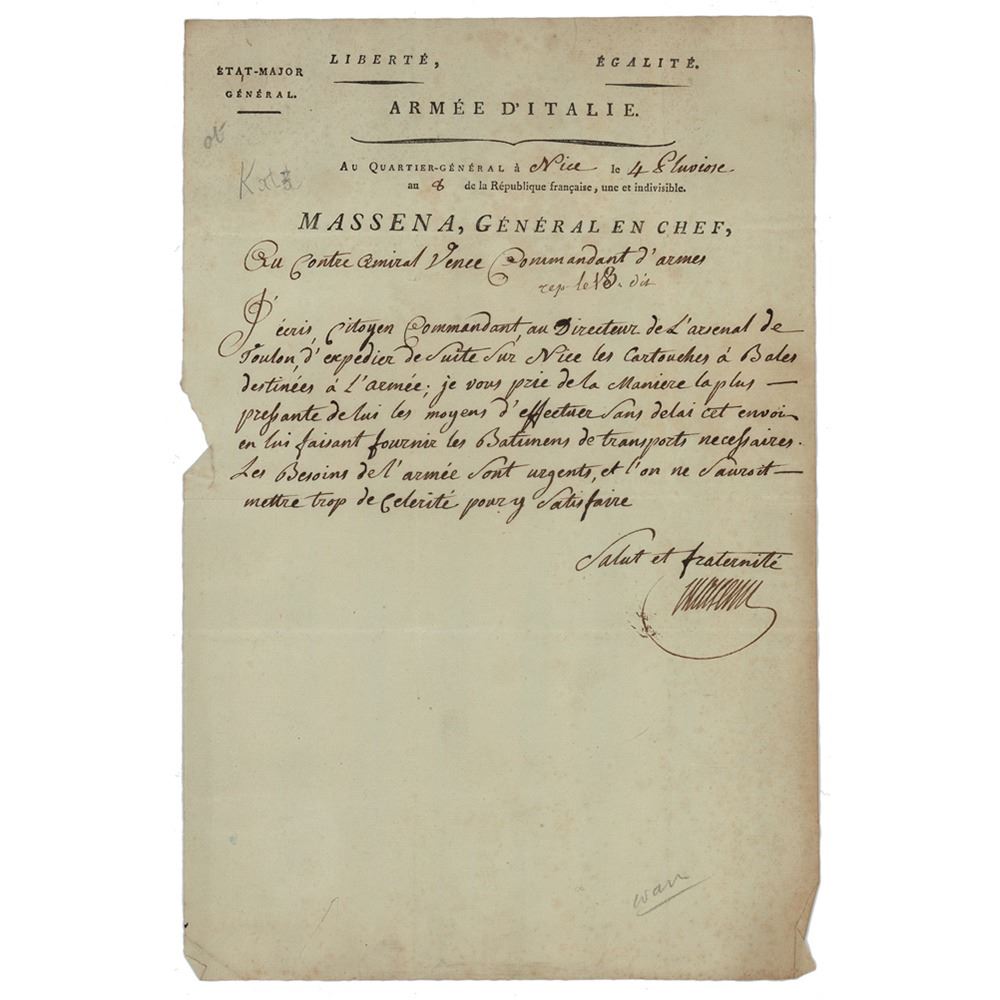 LIBERTÉ, ÉGALITÉ.
ÉTAT-MAJOR
GÉNÉRAL.
ARMÉE D'ITALIE.
AU QUARTIER-GÉNÉRAL à Nice le 4 Pluviose
an 8 de la République française, une et indivisible.
MASSENA, GÉNÉRAL EN CHEF,
Au Contre Amiral Vence Commandant d'armes
rep. le 13. dit
J'écris, Citoyen Commandant, au Directeur de L'arsenal de
Toulon, d'expédier de Suite Sur Nice les Cartouches à Bales
destinées à L'armée; je vous prie de la Maniere la plus —
pressante de lui les moyens d'effectuer Sans delai cet envoi
en lui faisant fournir les Batimens de transports necessaires.
Les Besoins de l'armée Sont urgents, et l'on ne Sauroit —
mettre trop de Celerité pour y Satisfaire
Salut et fraternité
Massena